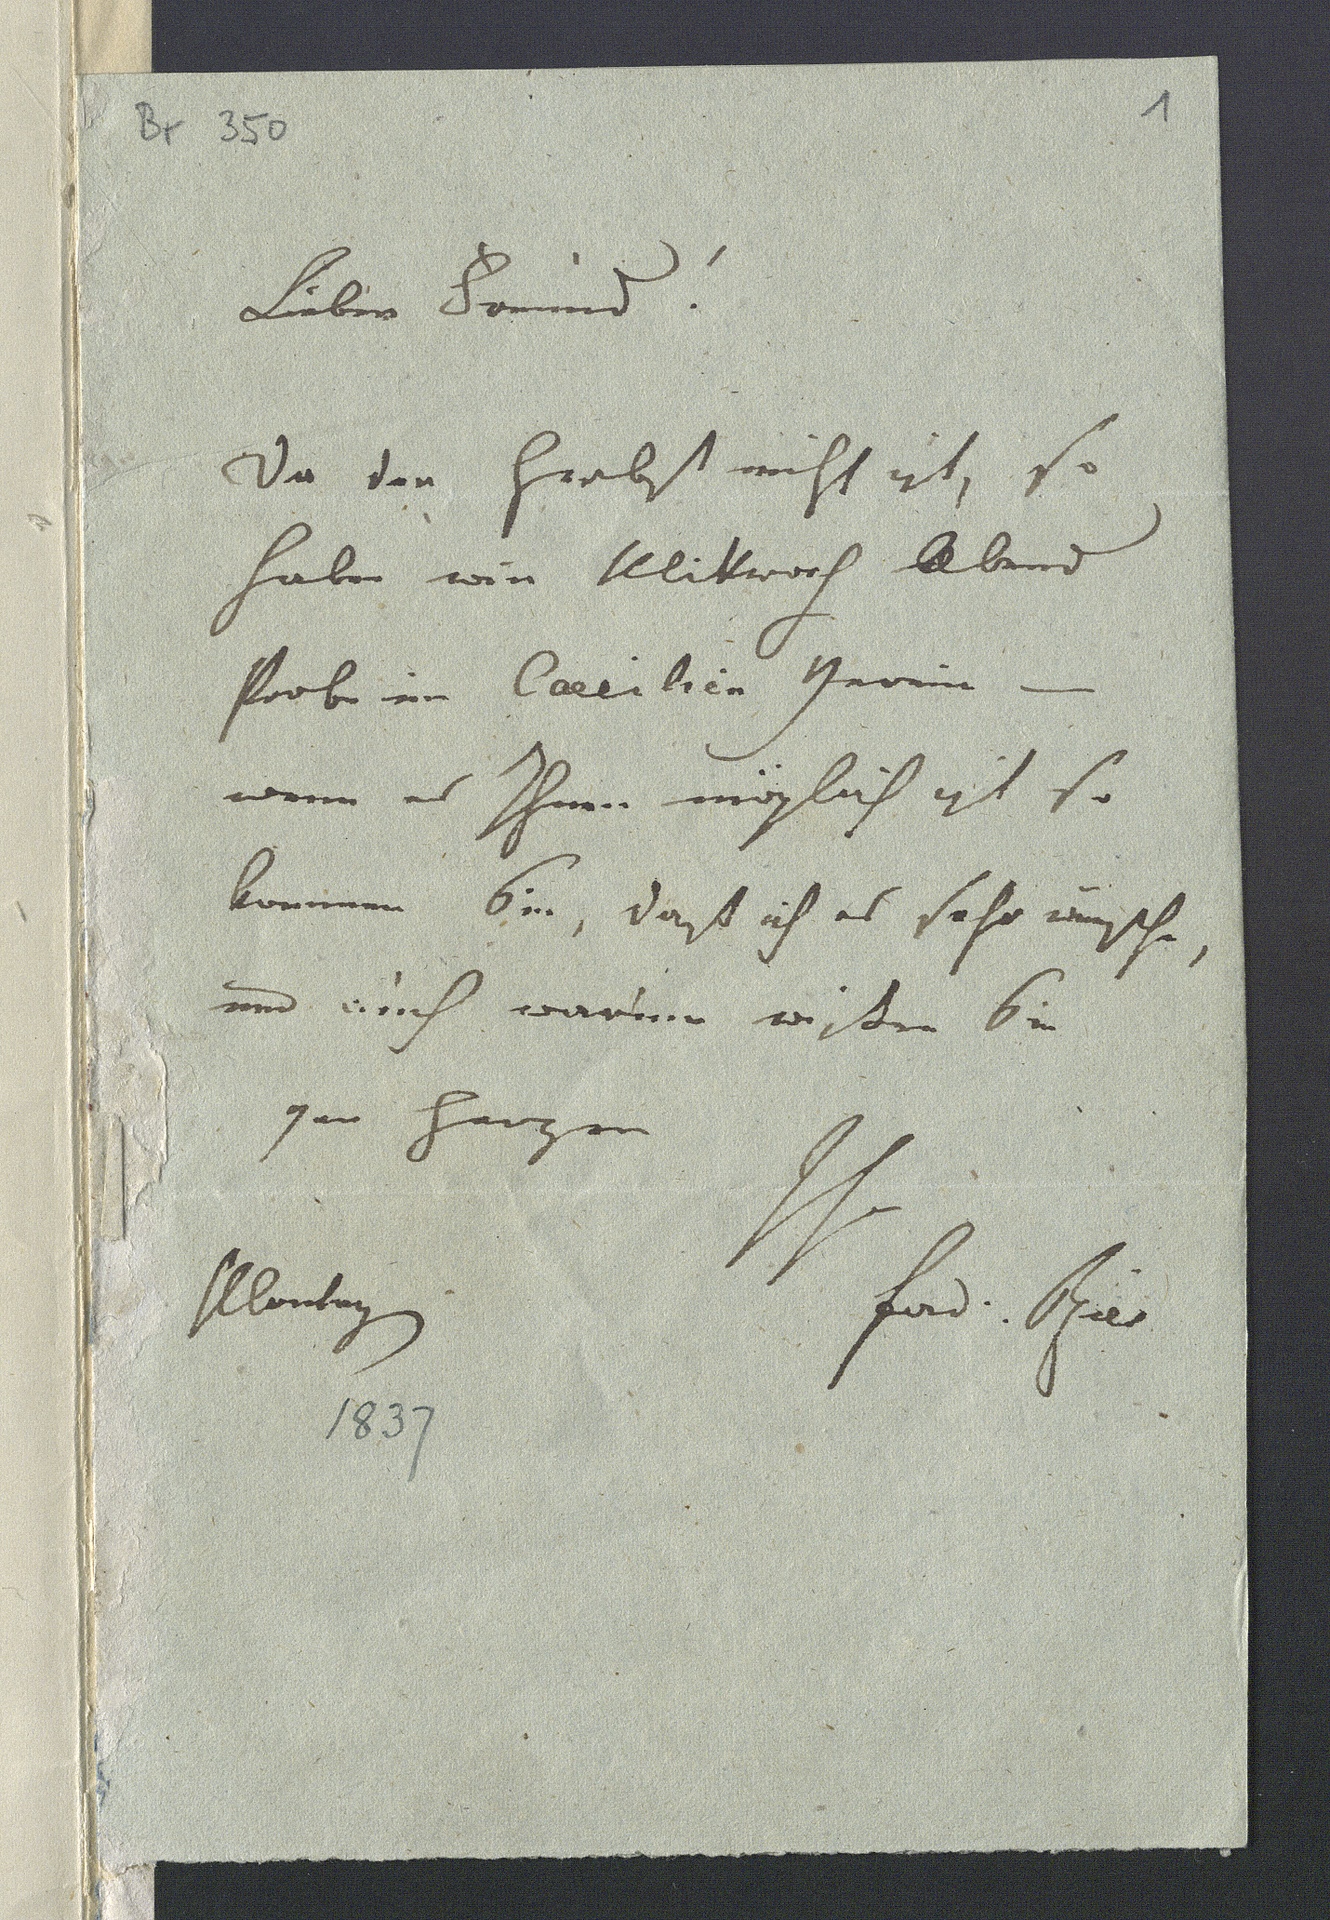 Br 350
1
Lieber Freund!
Da der Herbst nicht ist, so
haben wir Mittwoch Abend
Probe im Caecilien Verein —
wenn es Ihnen möglich ist so
kommen Sie, daß ich es sehr wünsche,
und auch warum wißen Sie
von Herzen
Ihr
Ferd. Ries
Montag
1837